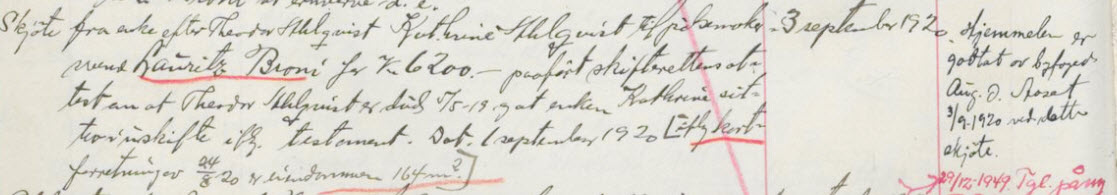 Skjöte fra enke efter Theodor Ahlquist Kathrine Ahlquist til
3 september 1920
wend Lauritz Broni for Kr. 6200.— paaført skifterettens at-
test om at Theodor Ahlquist er død 7/5-19, og at enken Kathrine sit-
ter i uskifte iflg. testament. Dat. 1 september 1920 [Iflg kart-
forretning av 24/8-20 er eiendommen 164 m².]
Hjemmelen er
godtat av byfoged
Aug. D.
3/9-1920 ved dette
skjöte.
29/12-1949. Tgl.